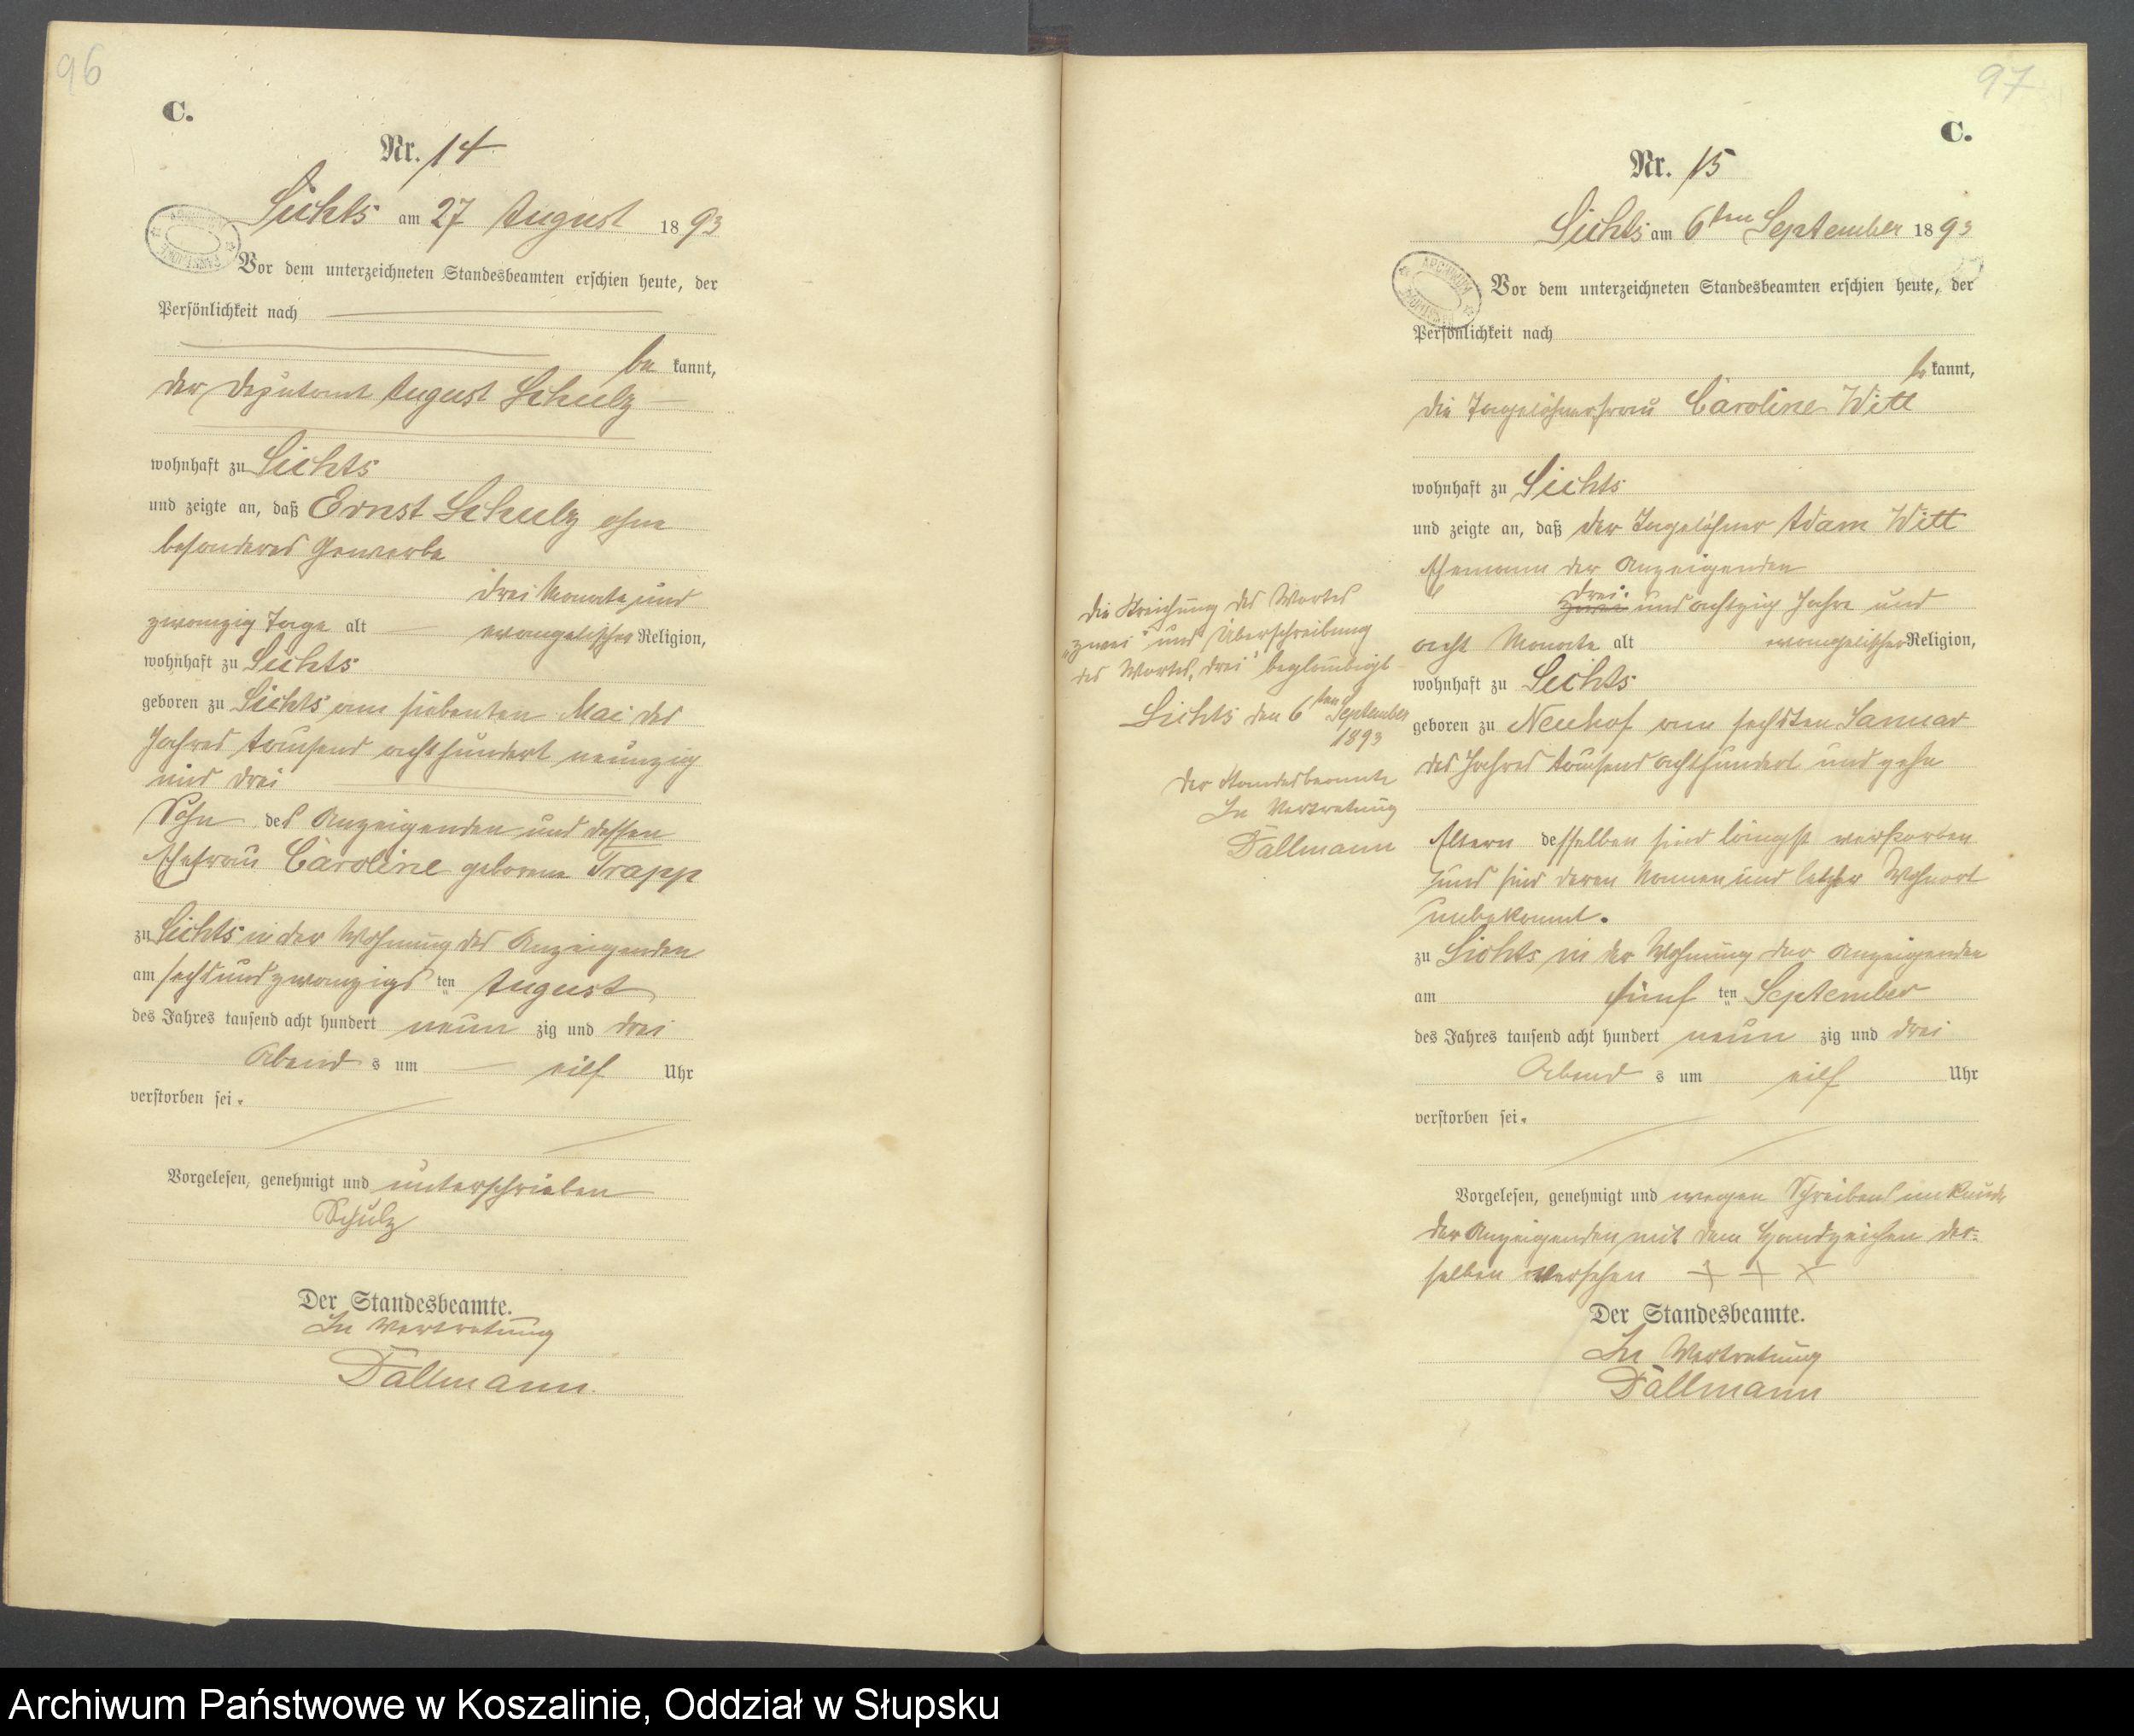 96
C.
Nr. 14
Lichts am 27 August 1893
Vor dem unterzeichneten Standesbeamten erschien heute, der
Persönlichkeit nach
be kannt,
der Deputant August Schulz
wohnhaft zu Lichts
und zeigte an, daß Ernst Schulz ohne
besonderes Gewerbe
drei Monate und
zwanzig Tage alt evangelischer Religion,
wohnhaft zu Lichts
geboren zu Lichts am siebenten Mai des
Jahres tausend achthundert neunzig
und drei
Sohn des Anzeigenden und dessen
Ehefrau Caroline geborene Trapp
zu Lichts in der Wohnung des Anzeigenden
am sechsundzwanzigs ten August
des Jahres tausend acht hundert neun zig und drei
Abend s um eilf Uhr
verstorben sei.
Vorgelesen, genehmigt und unterschrieben
Schulz
Der Standesbeamte.
In Vertretung
Dallmann.
97
C.
Nr. 15
Lichts am 6ten September 1893
Vor dem unterzeichneten Standesbeamten erschien heute, der
Persönlichkeit nach
be kannt,
die Tagelöhnerfrau Caroline Witt
wohnhaft zu Lichts
und zeigte an, daß der Tagelöhner Adam Witt
Ehemann der Anzeigenden
drei
zwei und achtzig Jahre und
acht Monate alt evangelischer Religion,
wohnhaft zu Lichts
geboren zu Neuhof am sechsten Januar
des Jahres tausend achthundert und zehn
Eltern desselben sind längst verstorben
und sind deren Namen und letzter Wohnort
unbekannt.
zu Lichts in der Wohnung der Anzeigenden
am fünf ten September
des Jahres tausend acht hundert neun zig und drei
Abend s um eilf Uhr
verstorben sei.
Vorgelesen, genehmigt und wegen Schreibensunkunde
der Anzeigenden mit dem Handzeichen der=
selben versehen + + +
Der Standesbeamte.
In Vertretung
Dallmann
die Streichung des Wortes
„zwei" und Überschreibung
des Wortes „drei" beglaubigt
Lichts den 6ten September
1893
Der Standesbeamte
In Vertretung
Dallmann
Archiwum Państwowe w Koszalinie, Oddział w Słupsku